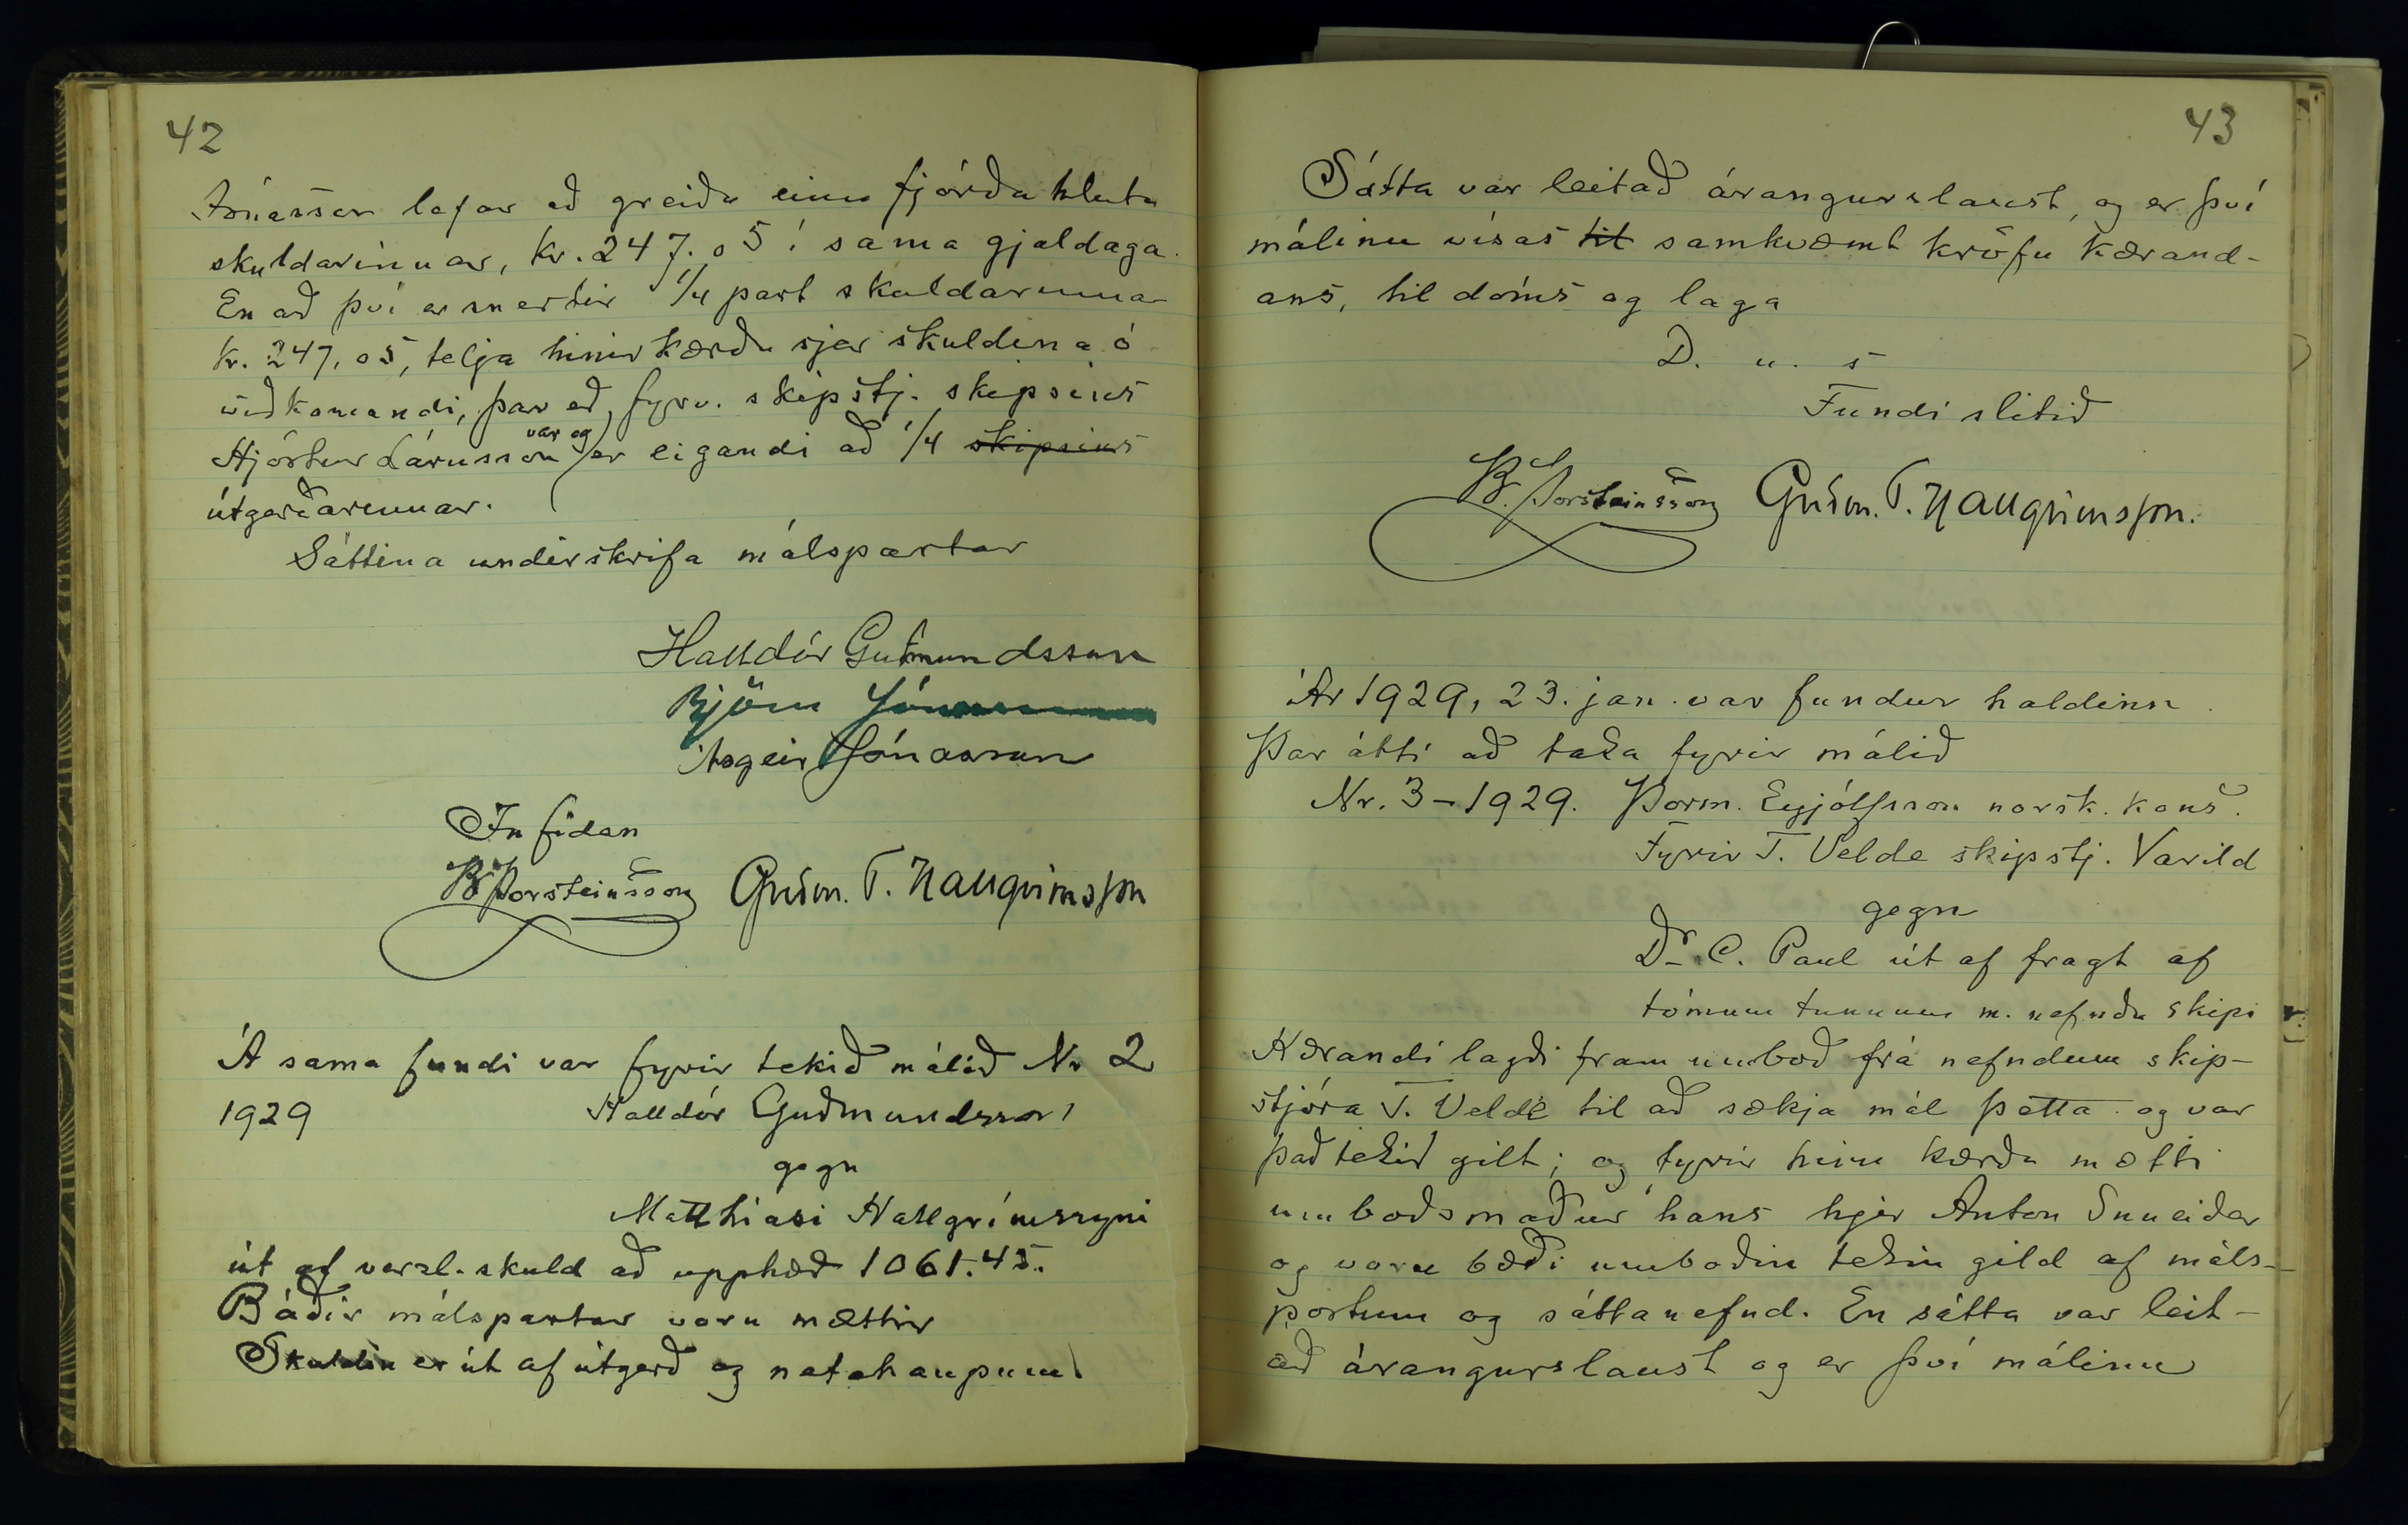 42
Jónasson lofar að greiða einn fjórða hluta
skuldarinnar, kr. 247.05 í sama gjaldaga.
En að því er snertir 1/4 part skuldarinnar
kr. 247,05, telja hinir kærðu sjer skuldina ó-
viðkomandi, þar eð fyrv. skipstj. skipsins
Hjörtur Lárusson var og er eigandi að 1/4 skipsins
útgerðarinnar.
Sáttina undirskrifa málspartar
Halldór Guðmundsson
Björn Jónasson
Ásgeir Jónasson
In fidem
B Þorsteinsson Guðm. T. Hallgrímsson
Á sama fundi var fyrir tekið málið Nr 2
1929 Halldór Guðmundsson
gegn
Matthíasi Hallgrímssyni
út af verzl. skuld að upphæð 1061.45.
Báðir málspartar voru mættir
Skuldin er út af útgerð og netakaupum
43
Sátta var leitað árangurslaust, og er því
málinu vísað til samkvæmt kröfu kærand-
ans, til dóms og laga
D. u. s
Fundi slitið
B. Þorsteinsson Guðm. T. Hallgrímsson.
Ár 1929, 23. jan. var fundur haldinn.
Þar átti að taka fyrir málið
Nr. 3-1929. Þorm. Eyjólfsson norsk. kons.
Fyrir T. Velde skipstj. Varild
gegn
Dr C. Paul út af fragt af
tómum tunnum m. nefndu skipi
Kærandi lagði fram umboð frá nefndum skip-
stjóra T. Velde til að sækja mál þetta og var
það tekið gilt; og fyrir hinn kærða mætti
umboðsmaður hans hjer Anton
og voru bæði umboðin tekin gild af máls-
pörtum og sáttanefnd. En sátta var leit-
að árangurslaust og er því málinu